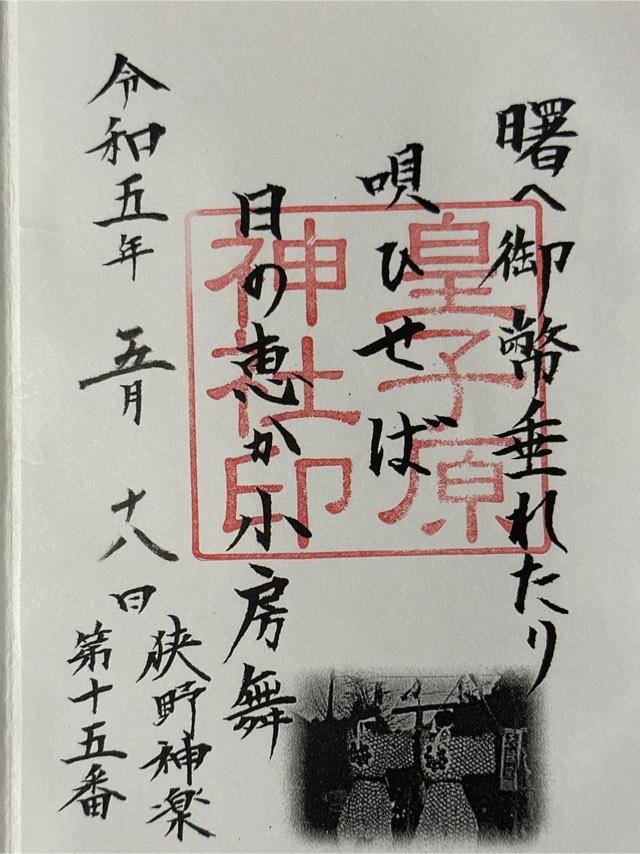 曙へ御幣垂れたり
唄ひせば
日の恵か小房舞
狭野神楽
第十五番
令和五年 五月 十八日
皇子原
神社印